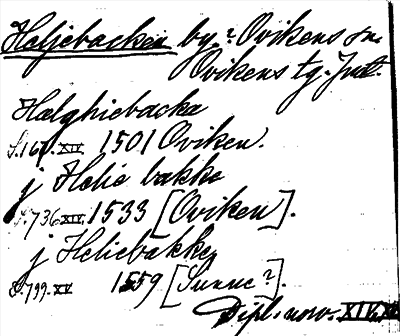 Heljebacken by? Ovikens sn.
Ovikens tg. Jmtl.
Hælghiebacka
XIV 1501 Oviken.
j Helie bakke
s. 736 XIV 1533 [Oviken].
j Heliebakke
s. 799. XV 1559 [Sunne?].
Dipl. nov. XIV, XV